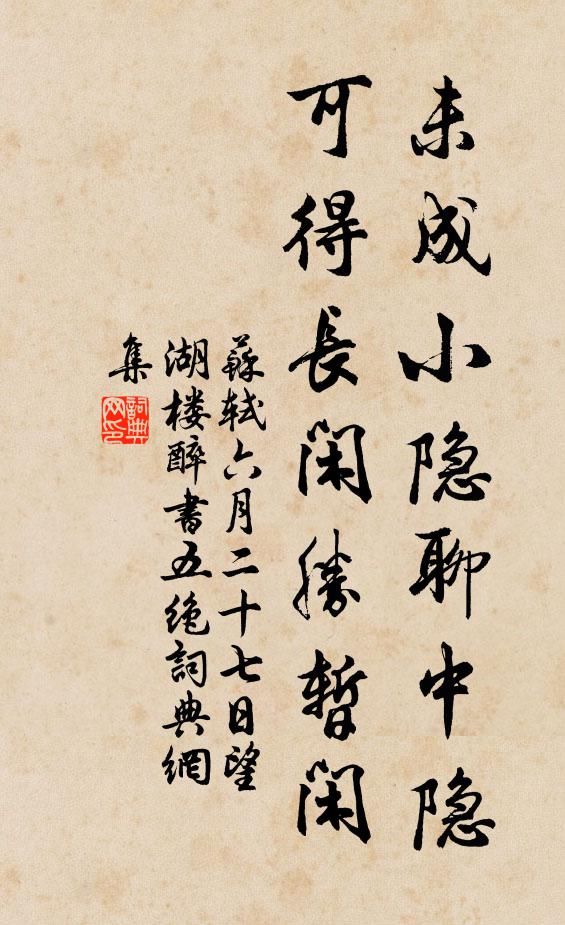 未成小隐聊中隐
可得長闲勝暫闲
蘇軾六月二十七日望
湖楼醉書五绝詞典網
集
詞典
网印